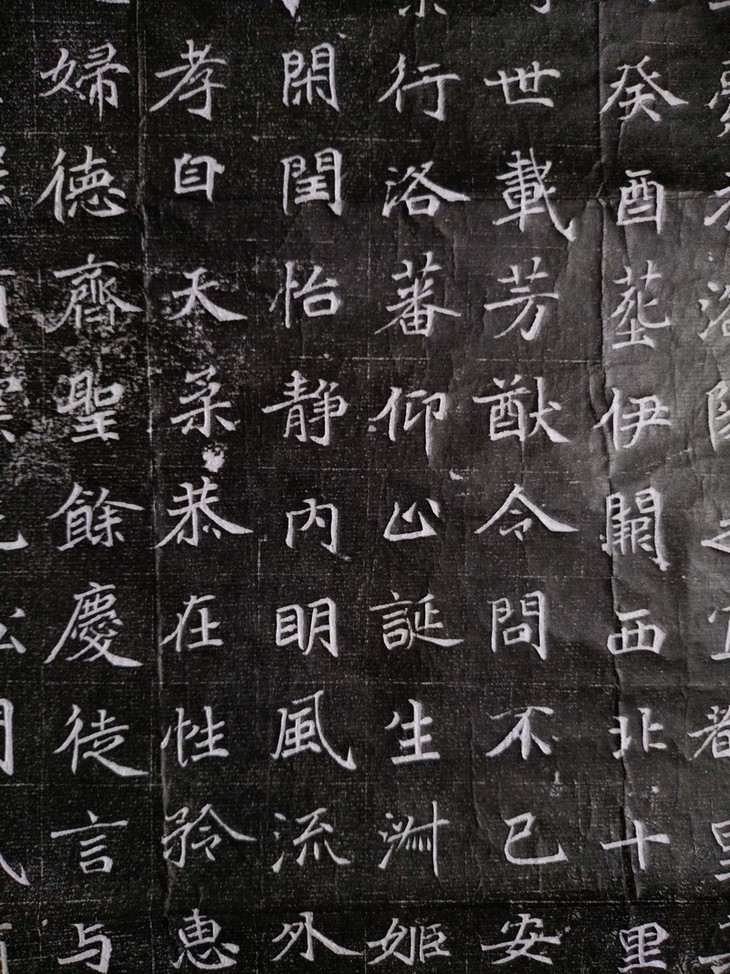 癸酉塟伊闕西北十里
世載芳猷令問不已安
行洛蕃仰山誕生淑姬
閑閨怡静内明風流外
孝自天柔恭在性矜惠
婦徳齊聖餘慶徒言与